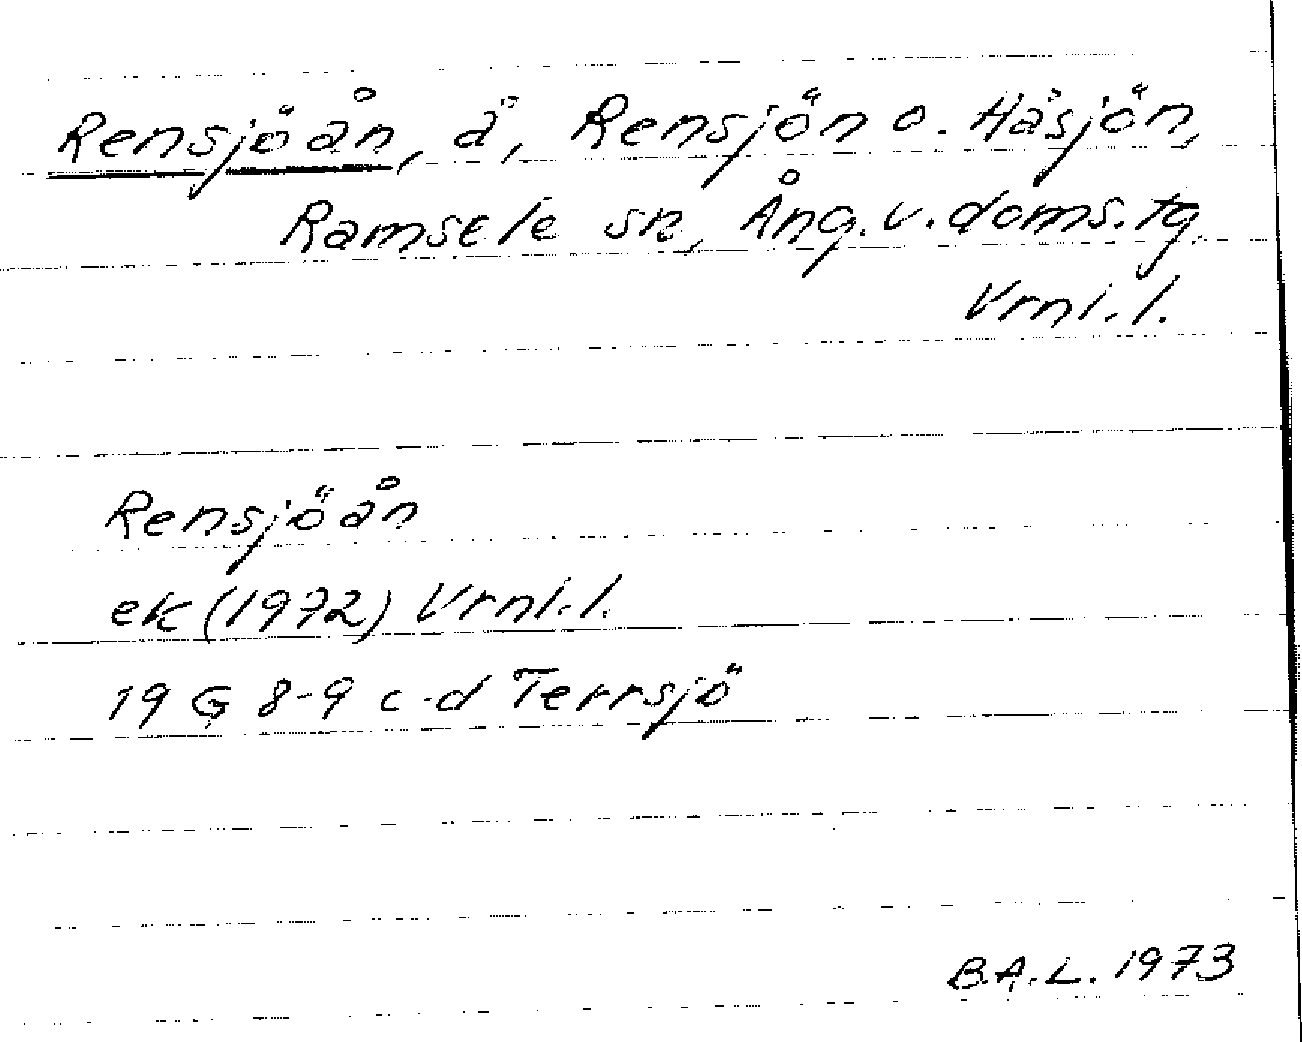 Rensjöån, å, Rensjön o. Håsjön,
Ramsele sn, Ång. v. doms. tg
Vrnl. l.
Rensjöån
ek (1972) Vrnl. l.
19 G 8-9 c-d Terrsjö
B.A.L. 1973